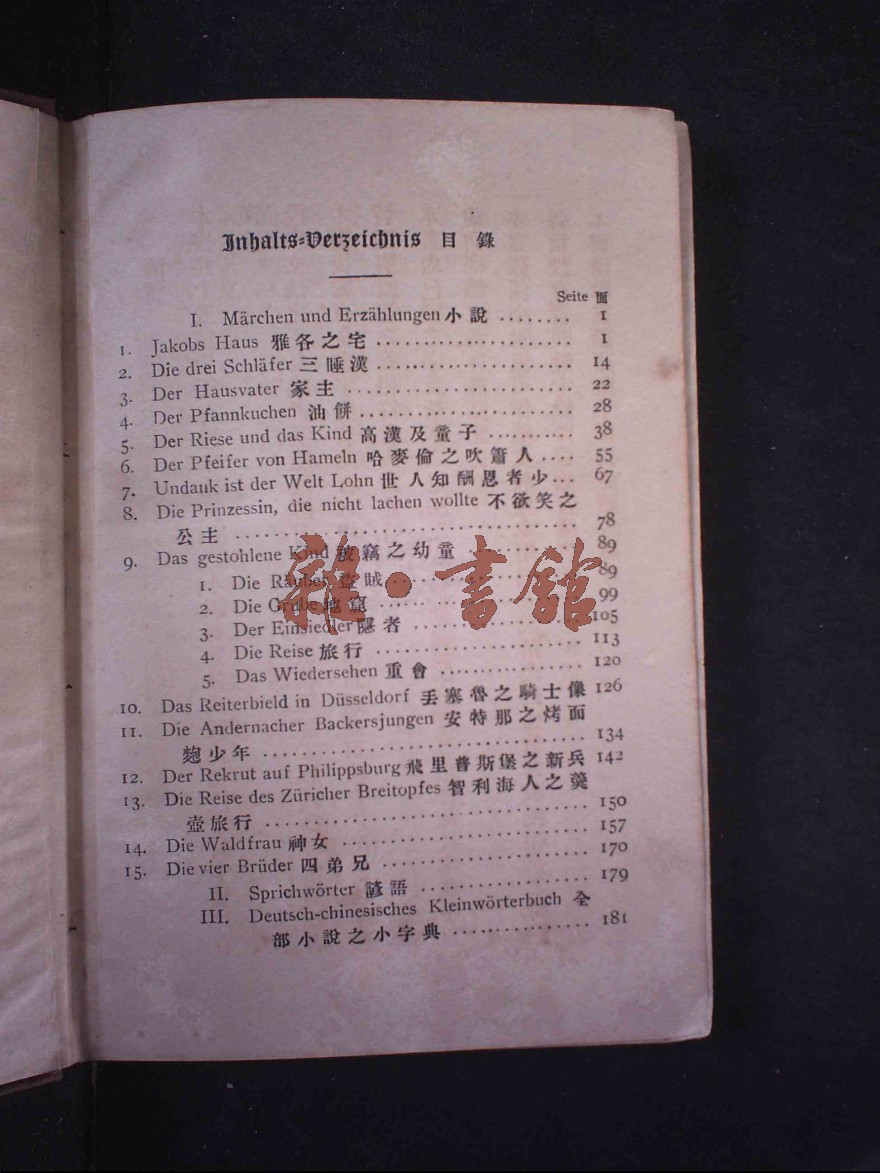 Inhalts-Verzeichnis 目錄
Seite 面
I. Märchen und Erzählungen 小說 ........ 1
1. Jakobs Haus 雅各之宅 ..................... 1
2. Die drei Schläfer 三睡漢 ..................... 14
3. Der Hausvater 家主 ........................ 22
4. Der Pfannkuchen 油餅 ....................... 28
5. Der Riese und das Kind 高漢及童子 ........... 38
6. Der Pfeifer von Hameln 哈麥倫之吹簫人 .... 55
7. Undauk ist der Welt Lohn 世人知酬恩者少 ... 67
8. Die Prinzessin, die nicht lachen wollte 不欲笑之
公主 .................................... 78
9. Das gestohlene Kind 被竊之幼童 ............ 89
1. Die Räuber 盜賊 .................... 89
2. Die Grube 地窟 ..................... 99
3. Der Einsiedler 隱者 ................. 105
4. Die Reise 旅行 ..................... 113
5. Das Wiedersehen 重會 ............... 120
10. Das Reiterbield in Düsseldorf 丢塞魯之騎士像 126
11. Die Andernacher Backersjungen 安特那之烤面
麭少年 .................................. 134
12. Der Rekrut auf Philippsburg 飛里普斯堡之新兵 142
13. Die Reise des Züricher Breitopfes 智利海人之羹
壺旅行 .................................. 150
14. Die Waldfrau 神女 ......................... 157
15. Die vier Brüder 四弟兄 ..................... 170
II. Sprichwörter 諺語 ................. 179
III. Deutsch-chinesisches Kleinwörterbuch 全
部小說之小字典 ............... 181
雜·書館